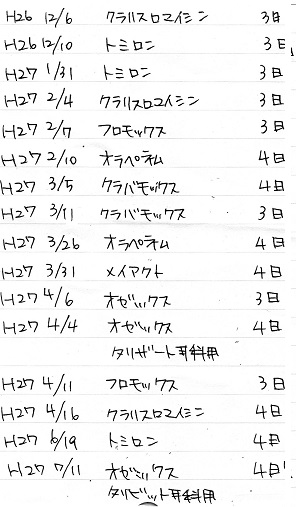 H26 12/6 クラリスロマイシン 3日
H26 12/10 トミロン 3日
H27 1/31 トミロン 3日
H27 2/4 クラリスロマイシン 3日
H27 2/7 フロモックス 3日
H27 2/10 オラペネム 4日
H27 3/5 クラバモックス 4日
H27 3/11 クラバモックス 3日
H27 3/26 オラペネム 4日
H27 3/31 メイアクト 4日
H27 4/6 オゼックス 3日
H27 4/4 オゼックス 4日
タリザート耳科用
H27 4/11 フロモックス 3日
H27 4/16 クラリスロマイシン 4日
H27 6/19 トミロン 4日
H27 7/11 オゼックス 4日
タリビット耳科用